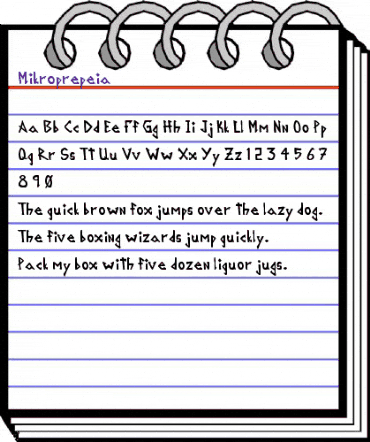 Mikroprepeia
Aa Bb Cc Dd Ee Ff Gg Hh Ii Jj Kk Ll Mm Nn Oo Pp
Qq Rr Ss Tt Uu Vv Ww Xx Yy Zz 1 2 3 4 5 6 7
8 9 0
The quick brown fox jumps over the lazy dog.
The five boxing wizards jump quickly.
Pack my box with five dozen liquor jugs.